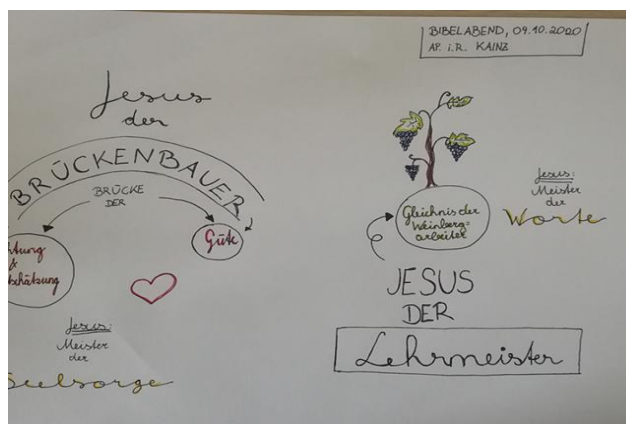 BIBELABEND, 09.10.2020
AP. i.R. KAINZ
Jesus
der
BRÜCKENBAUER
BRÜCKE
DER
Güte
Jesus:
Meister
der
Seelsorge
Gleichnis der
Weinberg=
arbeiter
Jesus:
Meister
der
Worte
JESUS
DER
Lehrmeister